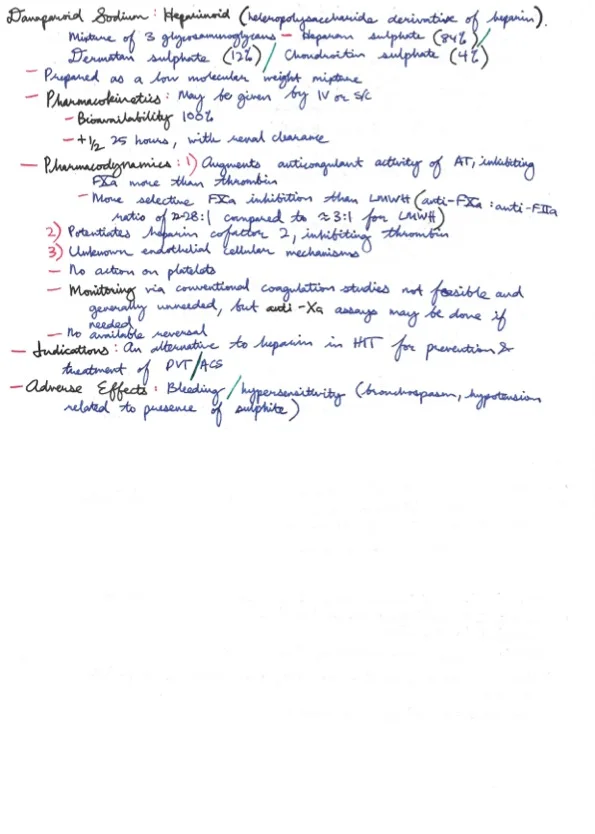 Danaparoid Sodium: Heparinoid (heteropolysaccharide derivative of heparin).
Mixture of 3 glycosaminoglycans — Heparan sulphate (84%) /
Dermatan sulphate (12%) / Chondroitin sulphate (4%)
— Prepared as a low molecular weight mixture
— Pharmacokinetics: May be given by IV or s/c
— Bioavailability 100%
— t1/2 25 hours, with renal clearance
— Pharmacodynamics: 1) Augments anticoagulant activity of AT, inhibiting
FXa more than thrombin
— More selective FXa inhibition than LMWH (anti-FXa : anti-FIIa
ratio of ≈28:1 compared to ≈3:1 for LMWH)
2) Potentiates heparin cofactor 2, inhibiting thrombin
3) Unknown endothelial cellular mechanisms
— No action on platelets
— Monitoring via conventional coagulation studies not feasible and
generally unneeded, but anti-Xa assays may be done if
needed
— No available reversal
— Indications: An alternative to heparin in HIT for prevention &
treatment of DVT/ACS
— Adverse Effects: Bleeding / hypersensitivity (bronchospasm, hypotension
related to presence of sulphite)